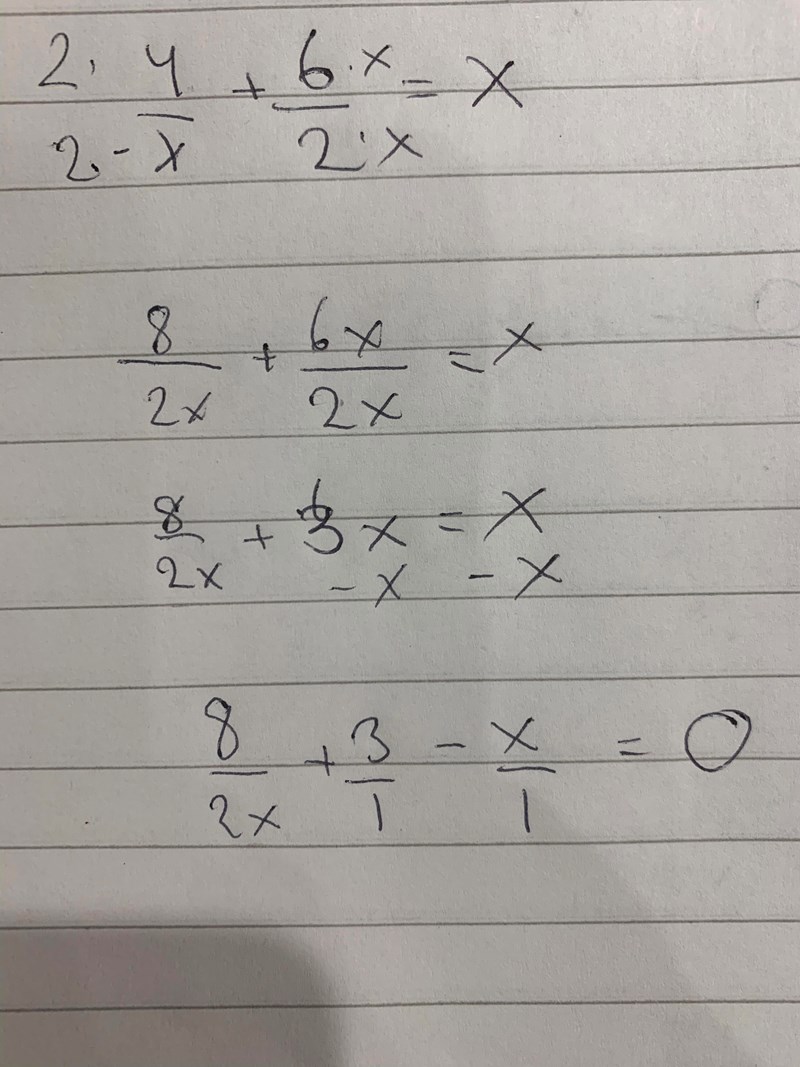 2· 4/2·x + 6·x/2·x = x
8/2x + 6x/2x = x
8/2x + 3x = x
-x -x
8/2x + 3/1 - x/1 = 0